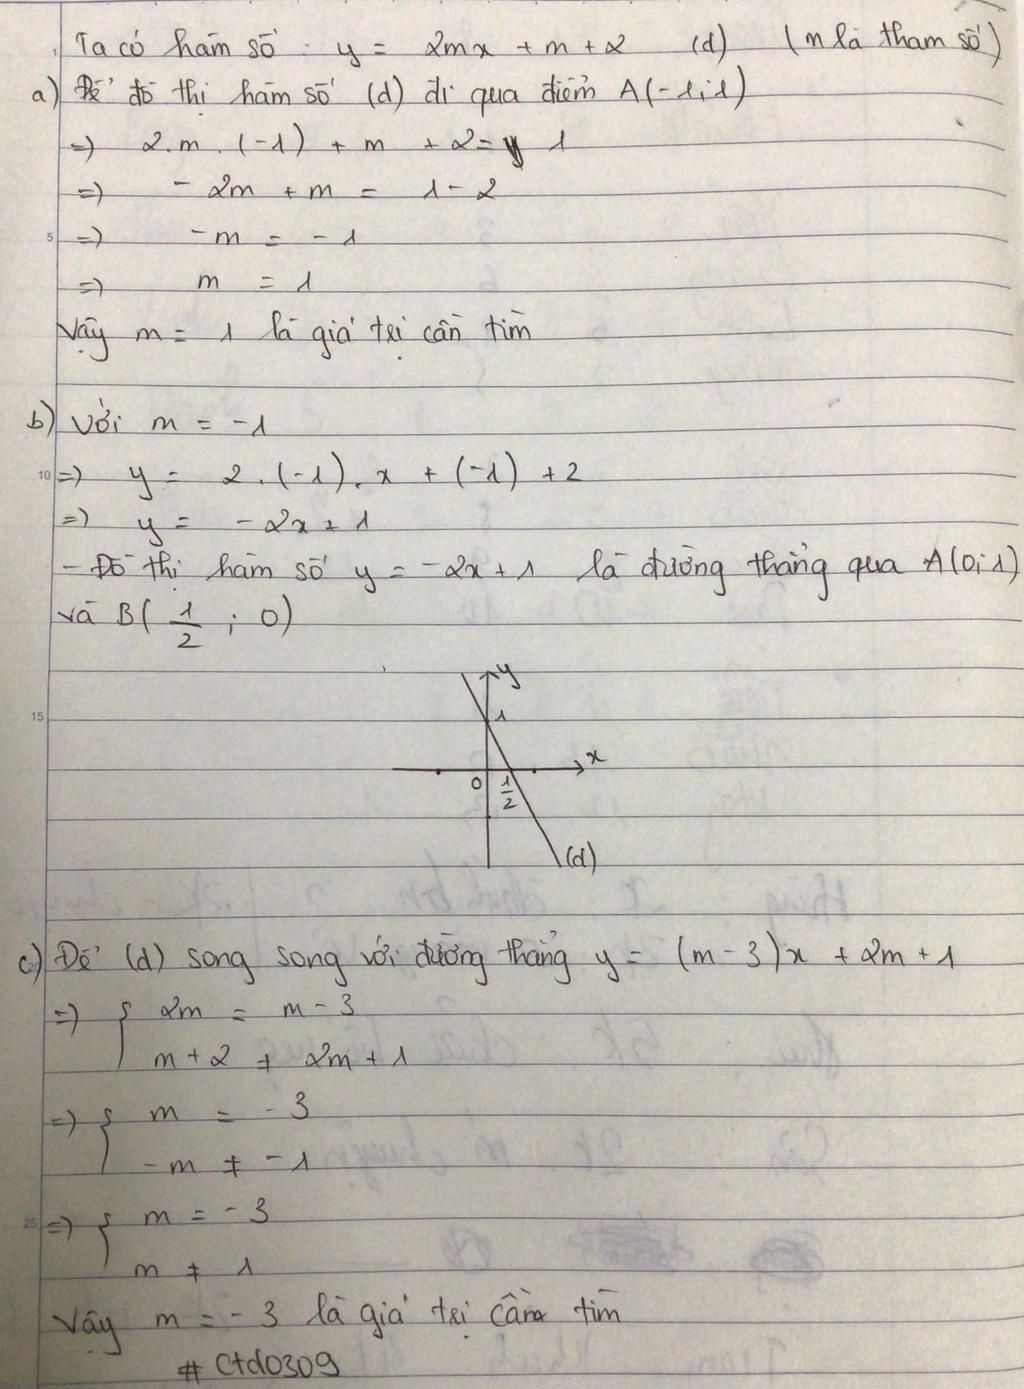 Ta có hàm số: y = 2mx + m + 2 (d) (m là tham số)
a) Để đồ thị hàm số (d) đi qua điểm A(-1;1)
=> 2.m.(-1) + m + 2 = 1
=> -2m + m = 1-2
5 => -m = -1
=> m = 1
Vậy m = 1 là giá trị cần tìm
b) Với m = -1
10 => y = 2.(-1).x + (-1) + 2
=> y = -2x + 1
- Đồ thị hàm số y = -2x + 1 là đường thẳng qua A(0;1)
và B(1/2; 0)
y
15
1
x
0 1/2
(d)
c) Để (d) song song với đường thẳng y = (m-3)x + 2m + 1
=> { 2m = m - 3
m + 2 ≠ 2m + 1
=> { m = -3
-m ≠ -1
25 => { m = -3
m ≠ 1
Vậy m = -3 là giá trị cần tìm
# Ctd0309